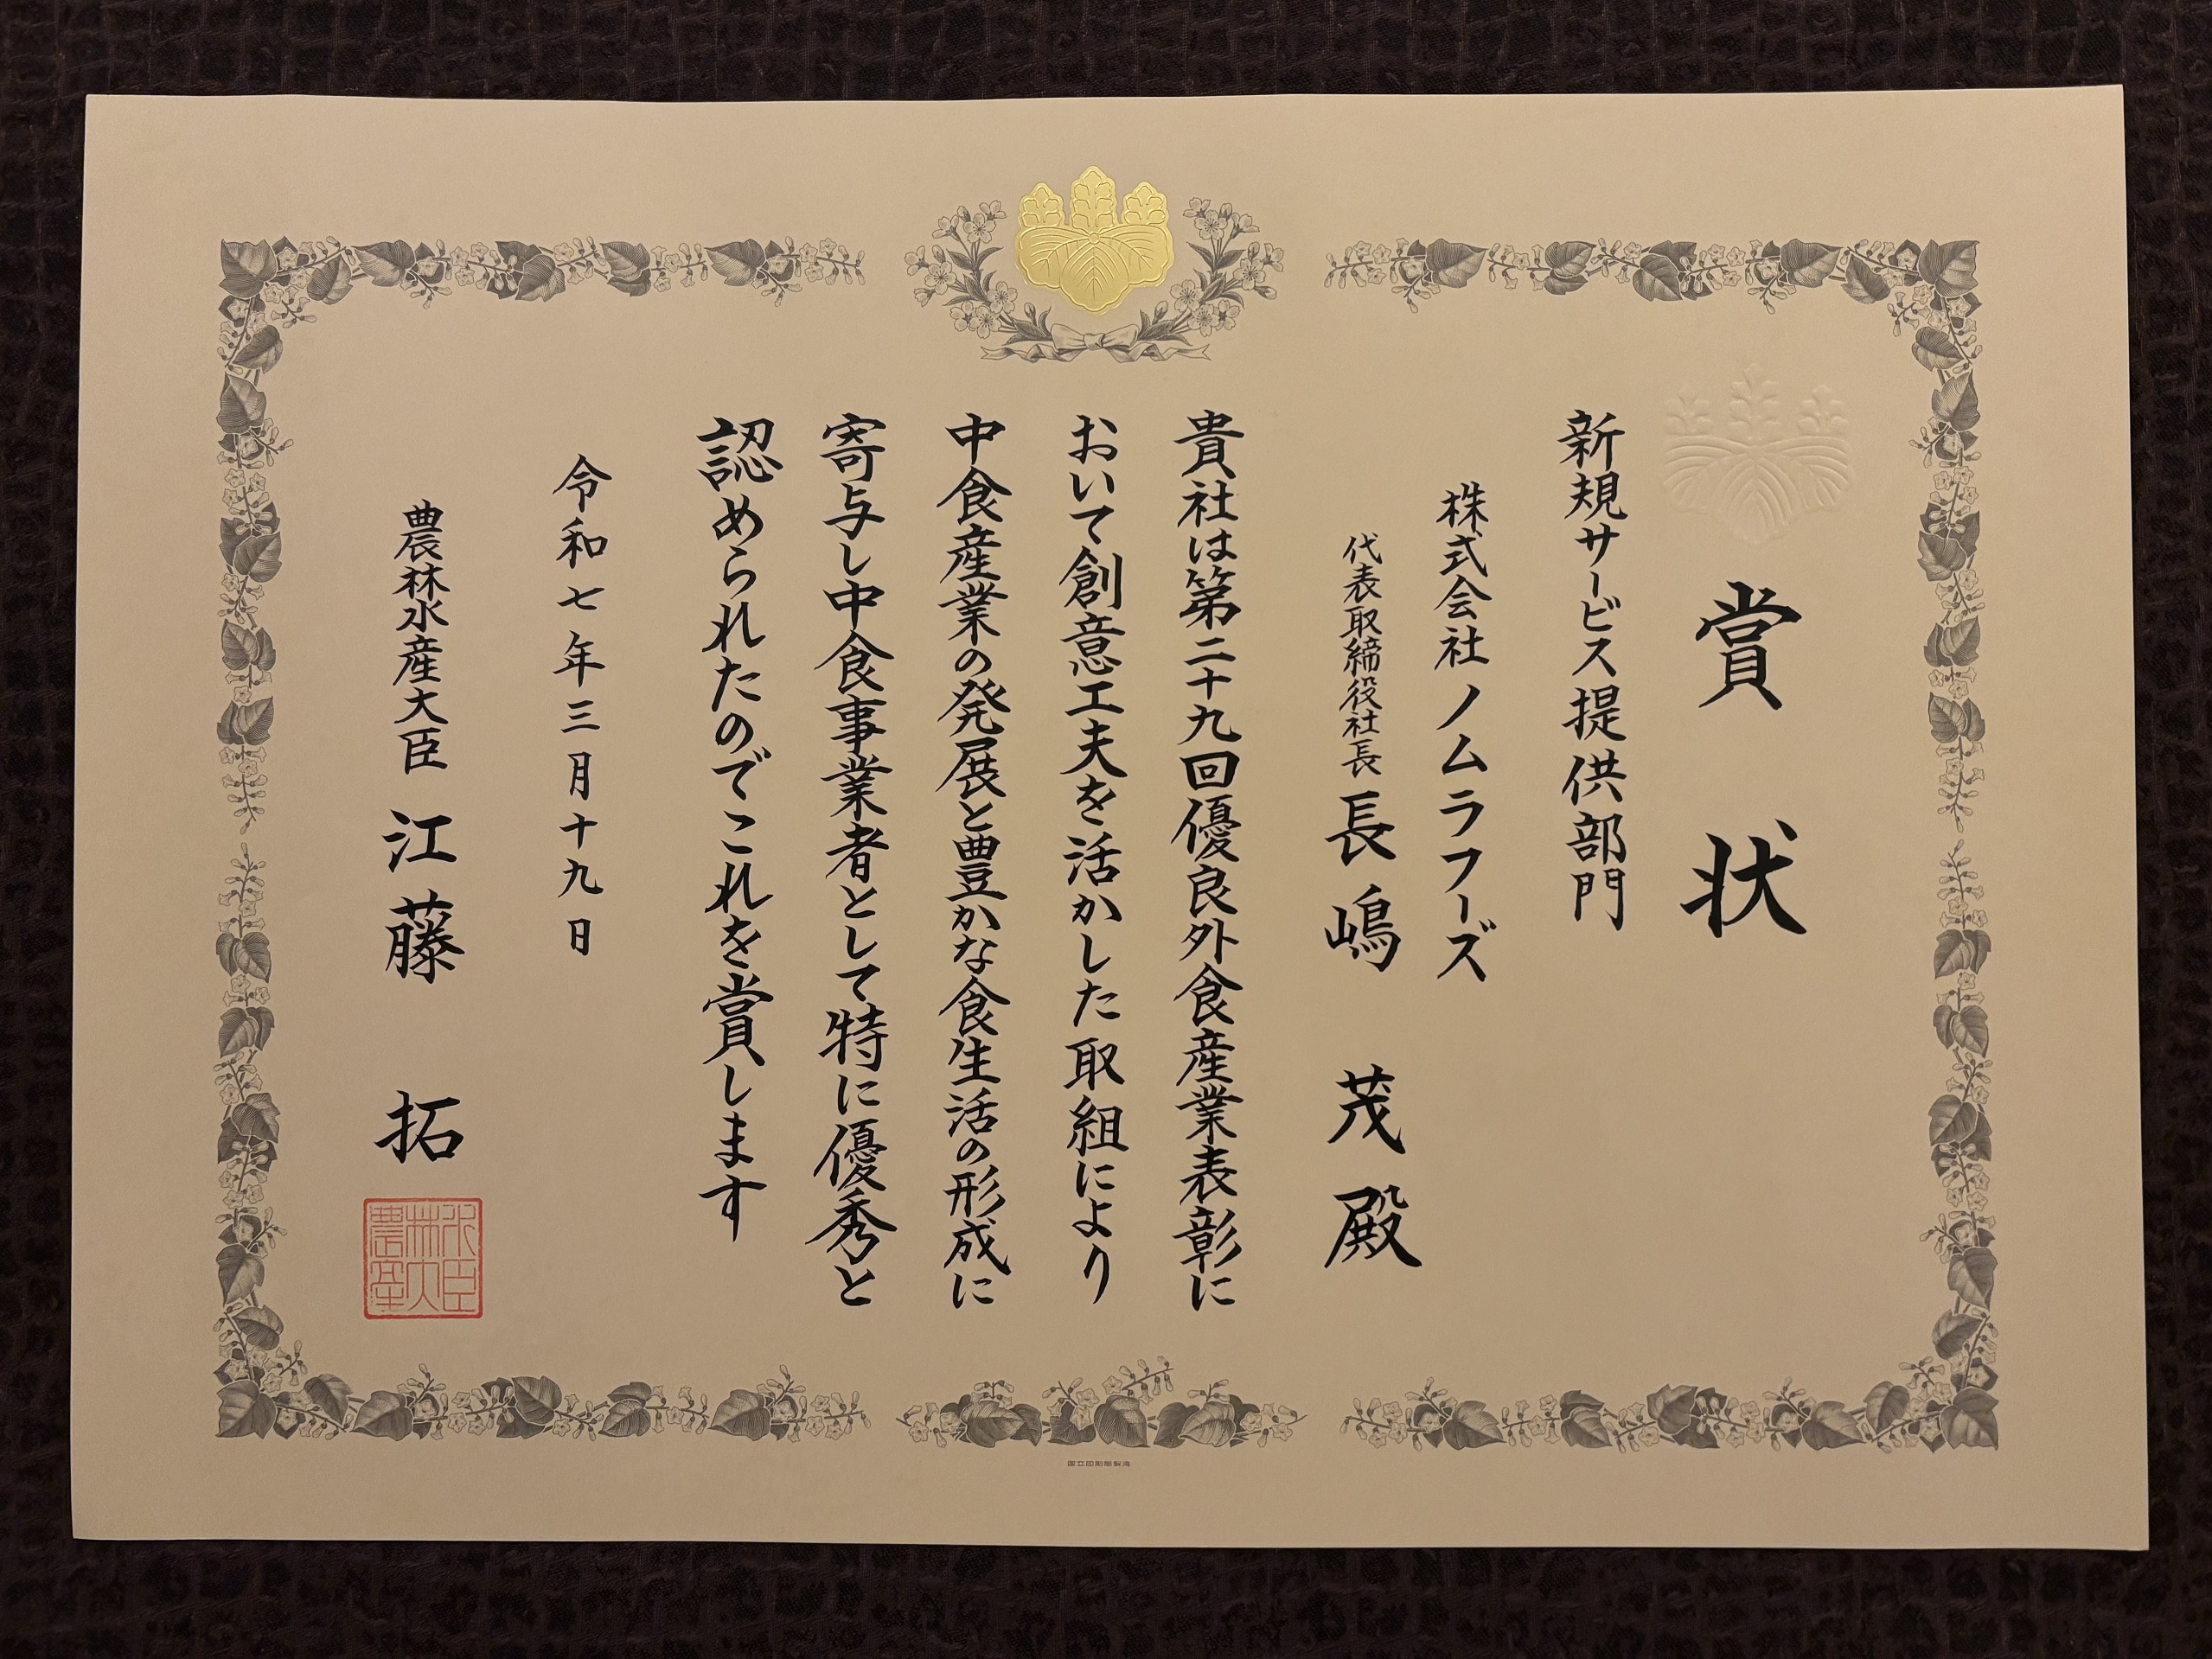 賞状
新規サービス提供部門
株式会社ノムラフーズ
代表取締役社長 長嶋 茂 殿
貴社は第二十九回優良外食産業表彰に
おいて創意工夫を活かした取組により
中食産業の発展と豊かな食生活の形成に
寄与し中食事業者として特に優秀と
認められたのでこれを賞します
令和七年三月十九日
農林水産大臣 江藤 拓
農林水産大臣
国立印刷局製造